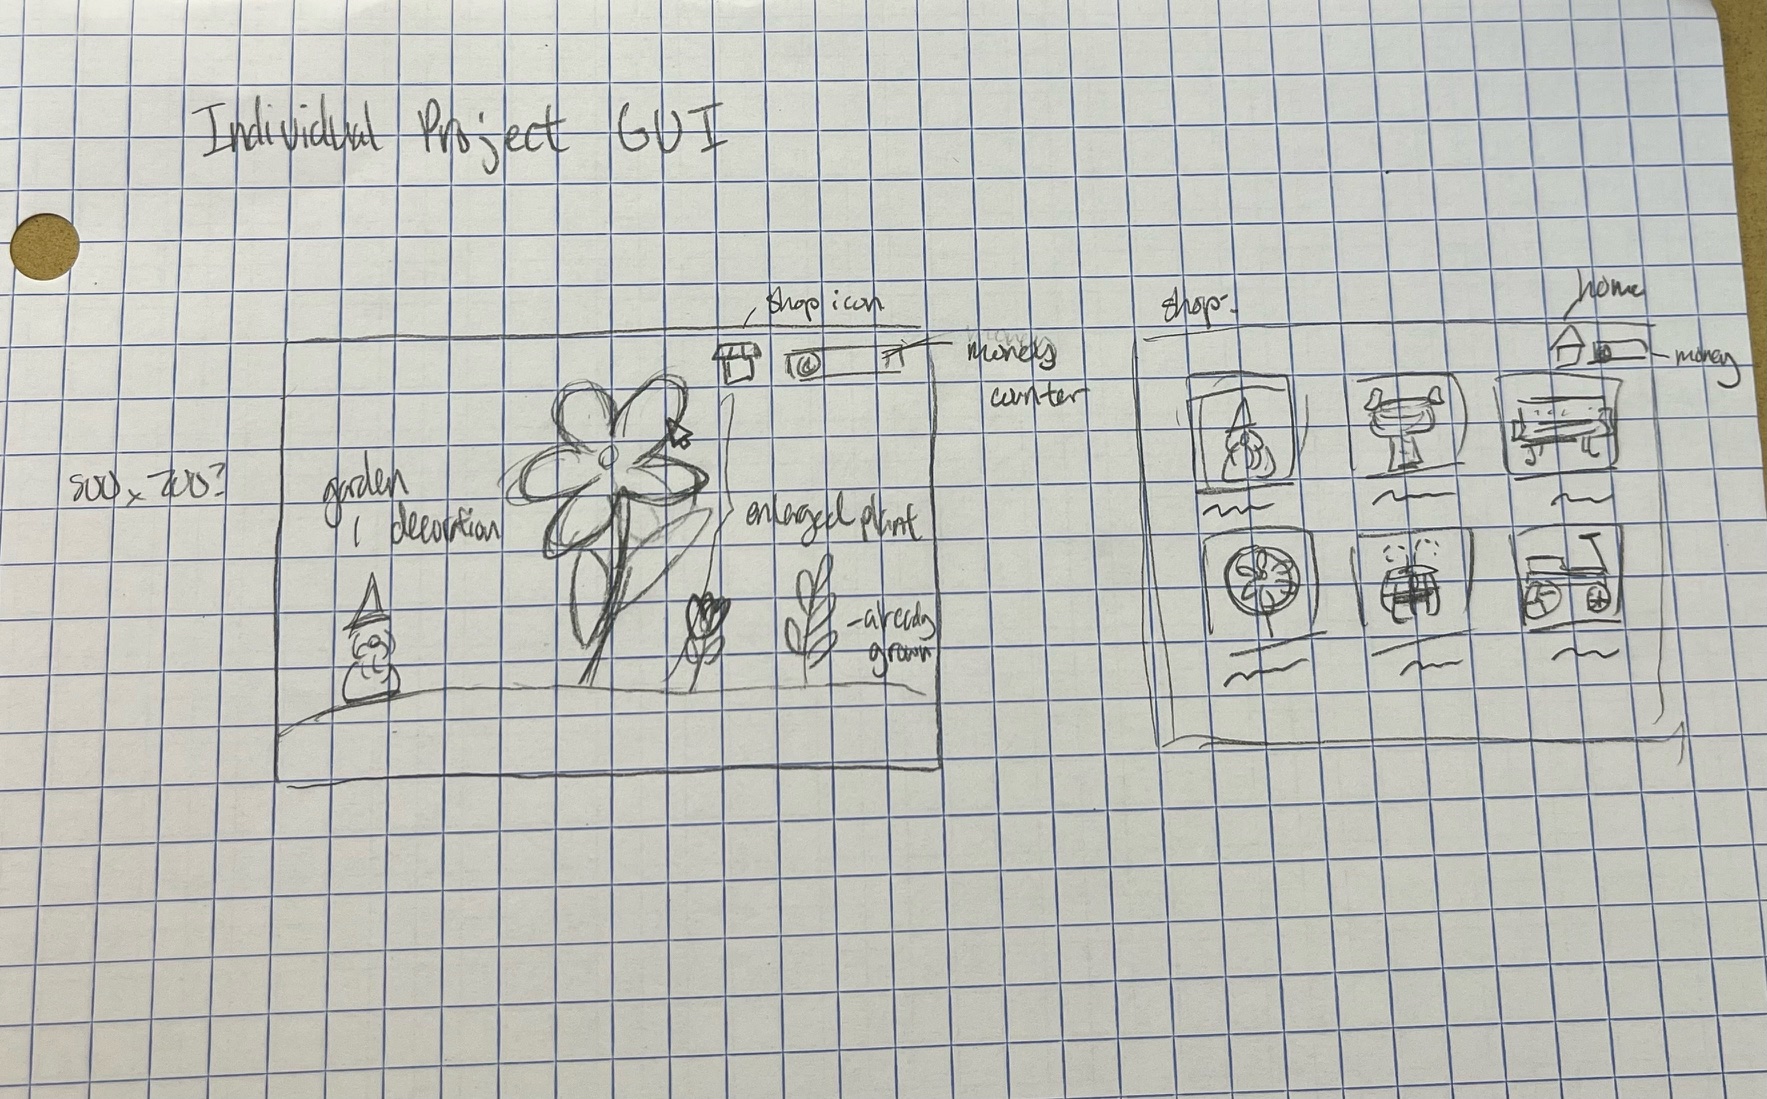 Individual Project GUI
shop icon
money
counter
800 x 700?
garden
decoration
enlarged plant
-already
grown
shop-
home
-money